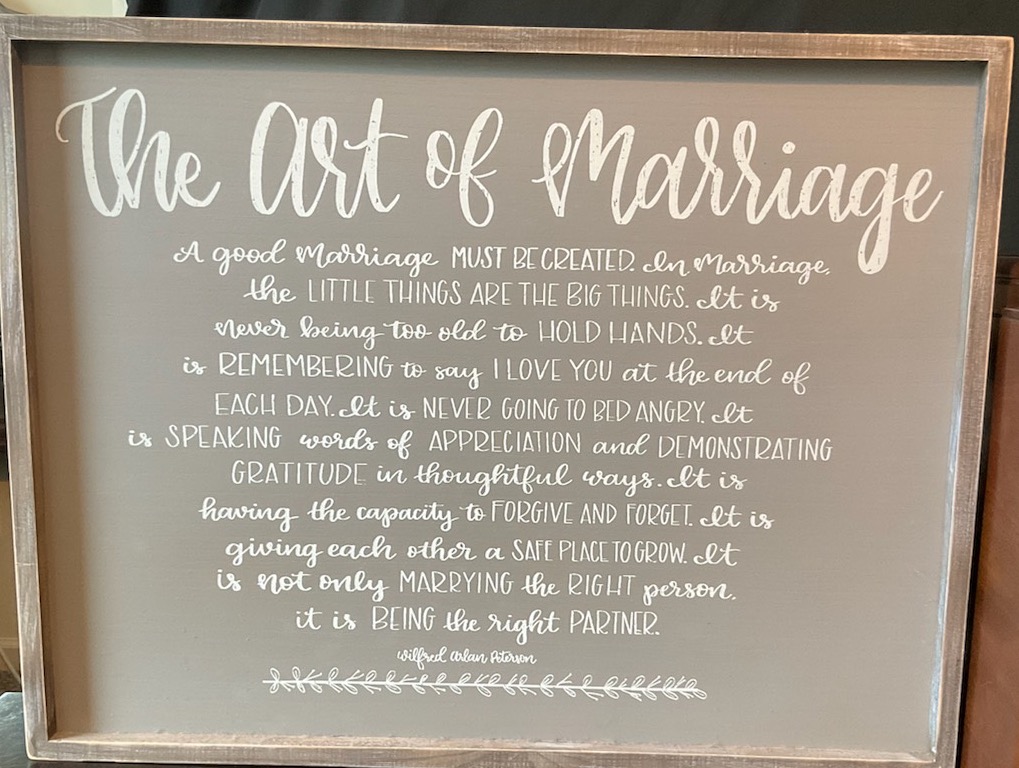 The Art of Marriage
A good Marriage MUST BE CREATED. In Marriage,
the LITTLE THINGS ARE THE BIG THINGS. It is
never being too old to HOLD HANDS. It
is REMEMBERING to say I LOVE YOU at the end of
EACH DAY. It is NEVER GOING TO BED ANGRY. It
is SPEAKING words of APPRECIATION and DEMONSTRATING
GRATITUDE in thoughtful ways. It is
having the capacity to FORGIVE AND FORGET. It is
giving each other a SAFE PLACE TO GROW. It
is not only MARRYING the RIGHT person,
it is BEING the right PARTNER.
Wilfred Arlan Peterson